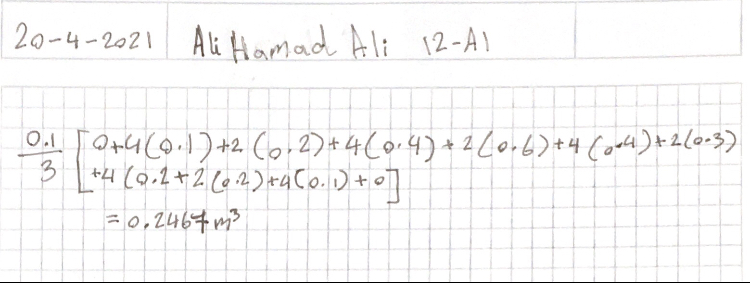 20-4-2021 Ali Hamad Ali 12-A1
0.1/3 [0+4(0.1)+2(0.2)+4(0.4)+2(0.6)+4(0.4)+2(0.3)
+4(0.2+2(0.2)+4(0.1)+0]
= 0.2467 m³